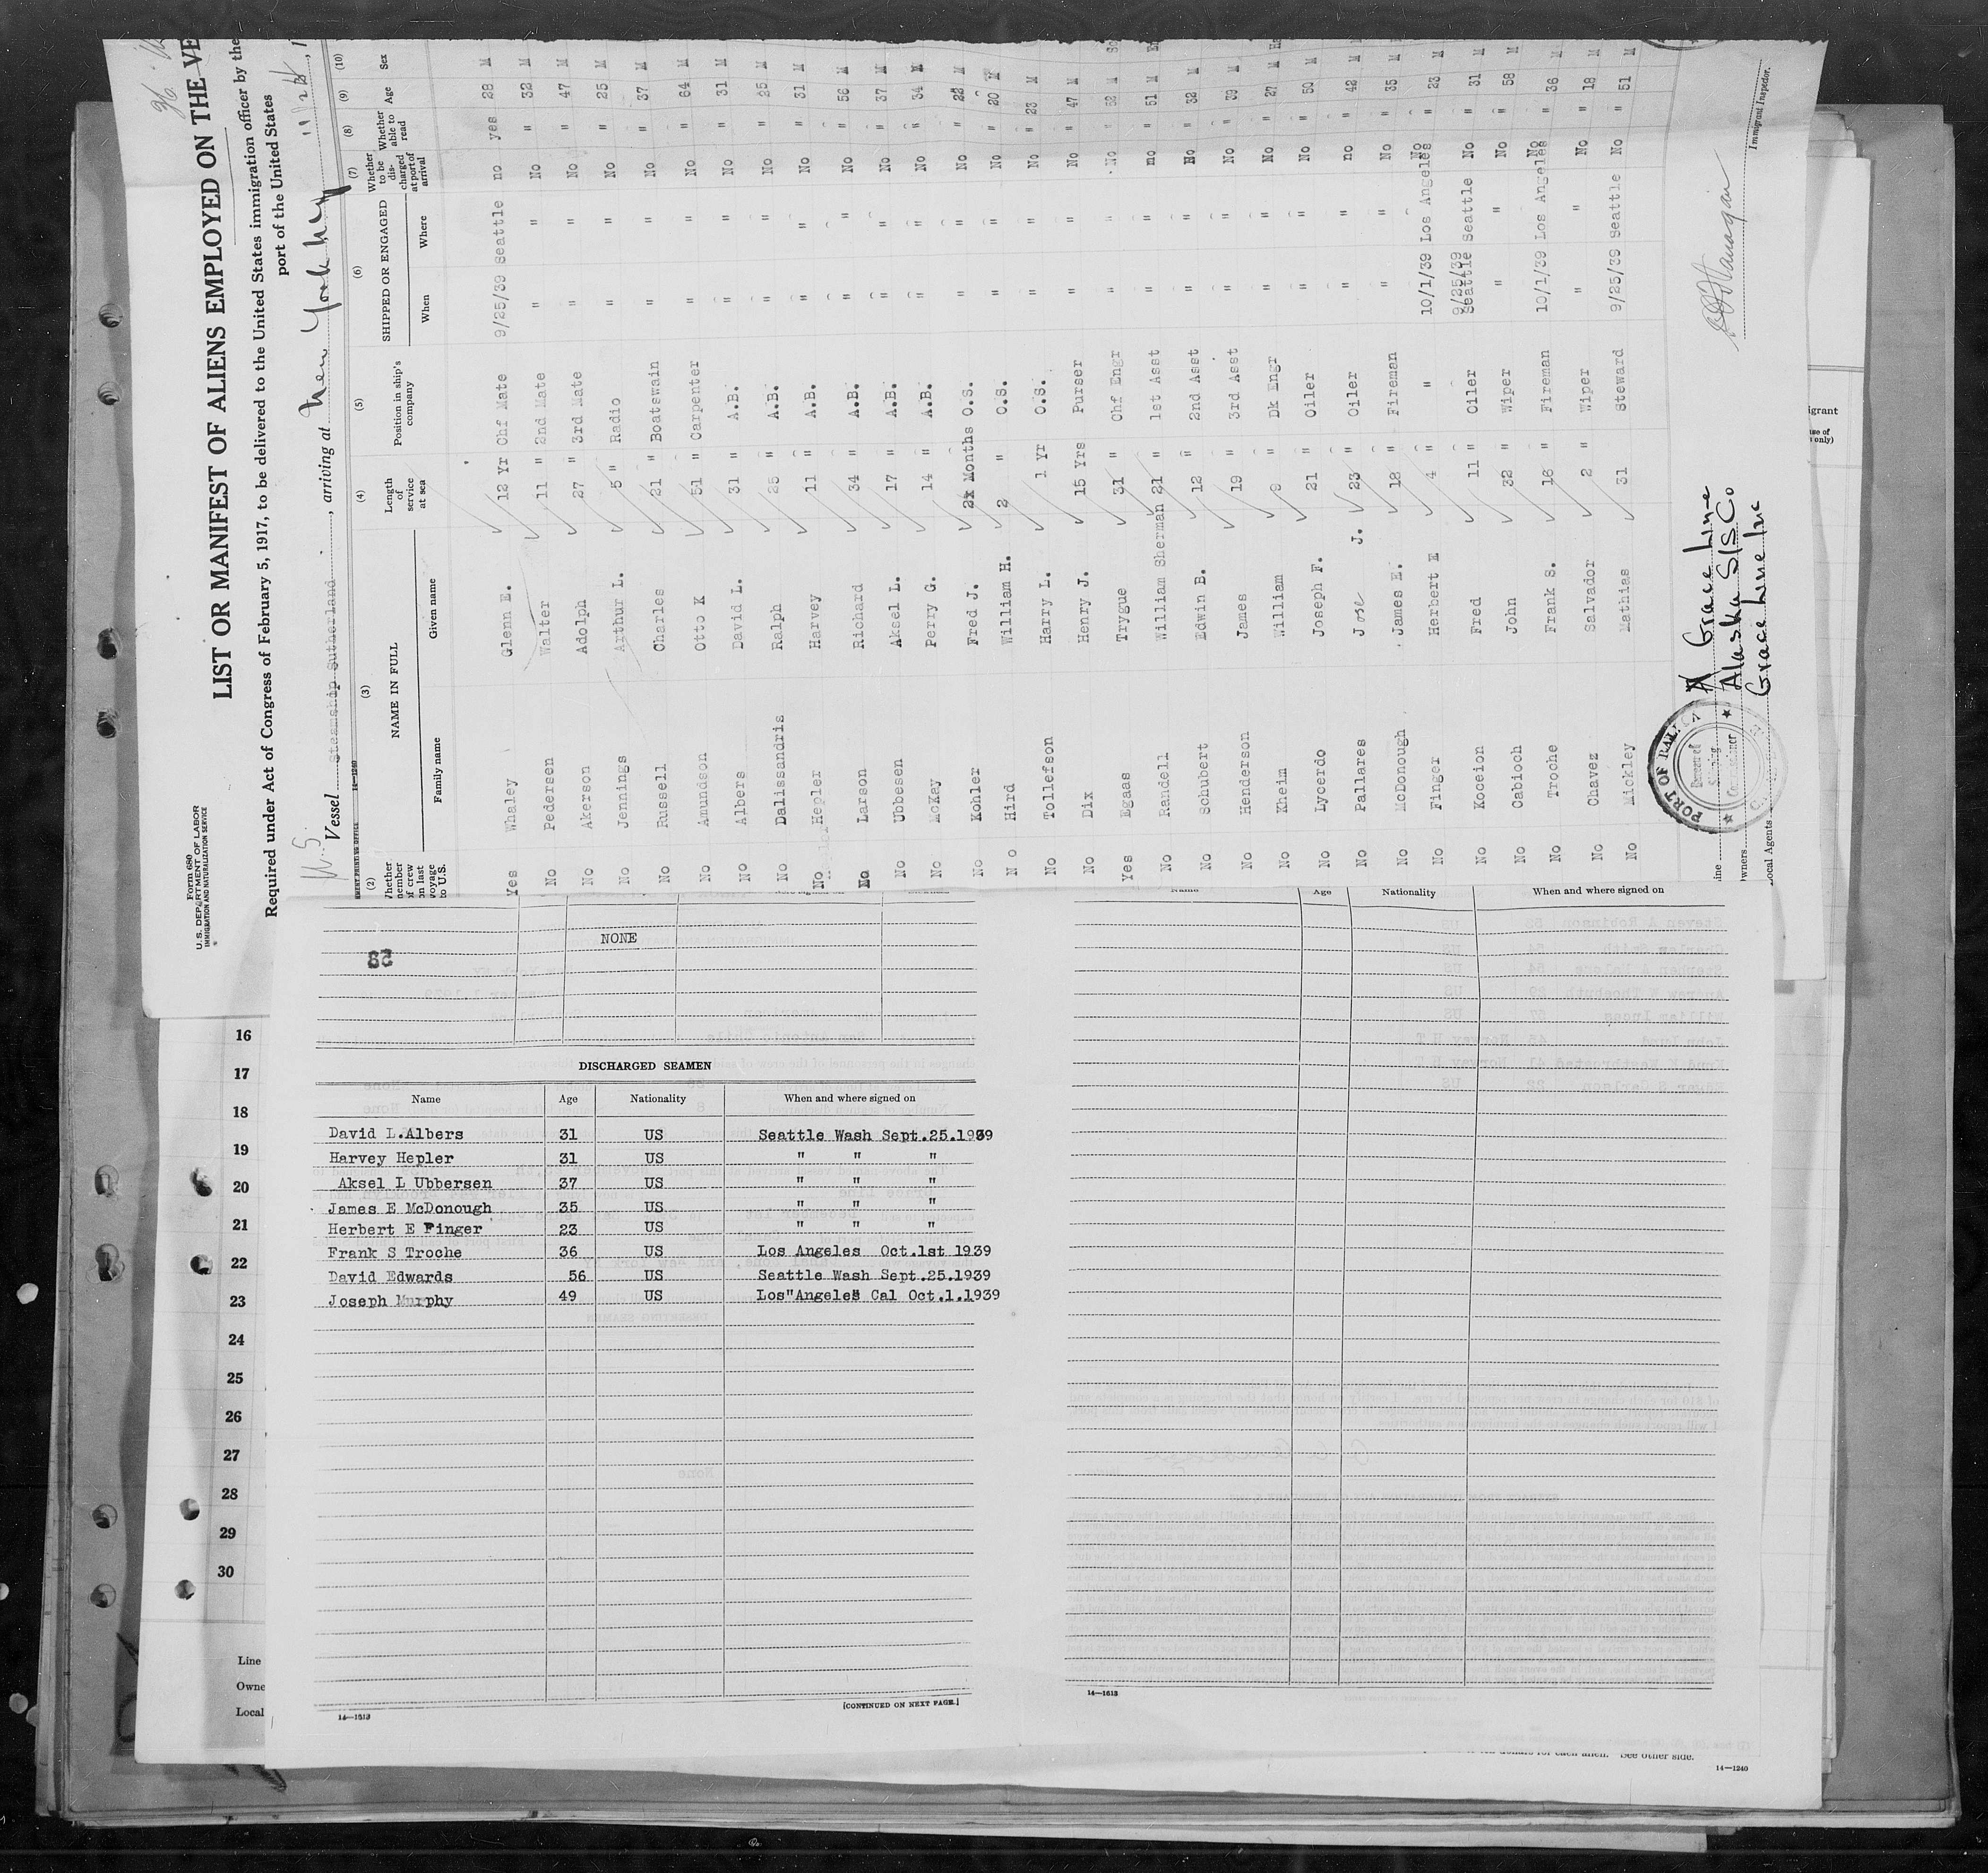 Form 680
U. S. DEPARTMENT OF LABOR
IMMIGRATION AND NATURALIZATION SERVICE
LIST OR MANIFEST OF ALIENS EMPLOYED ON THE VE
Required under Act of Congress of February 5, 1917, to be delivered to the United States immigration officer by the
port of the United States
Vessel Steamship Sutherland, arriving at New York NY
(2) (3) (4) (5) (6) (7) (8) (9) (10)
Whether member of crew on last voyage to U.S.
NAME IN FULL
Family name Given name
Length of service at sea
Position in ship's company
SHIPPED OR ENGAGED
When Where
Whether to be discharged at port of arrival
Whether able to read
Age Sex
Yes Whaley Glenn E. 12 Yr Chf Mate 9/25/39 Seattle no yes 28 M
No Pedersen Walter 11 " 2nd Mate " " No " 32 M
No Akerson Adolph 27 " 3rd Mate " " No " 47 M
No Jennings Arthur L. 5 " Radio " " No " 25 M
No Russell Charles 21 " Boatswain " " No " 37 M
No Amundson Otto K 51 " Carpenter " " No " 64 M
No Albers David L. 31 " A.B. " " No " 31 M
No Dalissandris Ralph 25 " A.B. " " No " 25 M
No Hepler Harvey 11 " A.B. " " No " 31 M
No Larson Richard 34 " A.B. " " No " 56 M
No Ubbesen Aksel L. 17 " A.B. " " No " 37 M
No McKay Perry G. 14 " A.B. " " No " 34 M
No Kohler Fred J. Months O.S. " " No " 22 M
No Hird William H. 2 " O.S. " " No " 20 M
No Tollefson Harry L. 1 Yr O.S. " " No " 23 M
No Dix Henry J. 15 Yrs Purser " " No " 47 M
Yes Egaas Trygue 31 " Chf Engr " " No " 52 M
No Randell William Sherman 21 " 1st Asst " " no " 51 M
No Schubert Edwin B. 12 " 2nd Asst " " No " 32 M
No Henderson James 19 " 3rd Asst " " No " 39 M
No Kheim William 9 " Dk Engr " " No " 27 M
No Lycerdo Joseph F. 21 " Oiler " " No " 50 M
No Pallares Jose J. 23 " Oiler " " no " 42 M
No McDonough James E. 18 " Fireman " " No " 35 M
No Finger Herbert E 4 " " 10/1/39 Los Angeles No " 23 M
No Koceion Fred 11 " Oiler 9/25/39 Seattle Seattle No " 31 M
No Cabioch John 32 " Wiper " " No " 58 M
No Troche Frank S. 16 " Fireman 10/1/39 Los Angeles No " 36 M
No Chavez Salvador 2 " Wiper " " No " 18 M
No Mickley Mathias 31 Steward 9/25/39 Seattle No " 51 M
PORT OF
Line Grace Line
Owners Alaska S/S Co
Local Agents Grace Line Inc
Immigrant Inspector.
NONE
DISCHARGED SEAMEN
Name Age Nationality When and where signed on
David L.Albers 31 US Seattle Wash Sept.25.1939
Harvey Hepler 31 US " " "
Aksel L Ubbersen 37 US " " "
James E McDonough 35 US " " "
Herbert E Finger 23 US " " "
Frank S Troche 36 US Los Angeles Oct.1st 1939
David Edwards 56 US Seattle Wash Sept.25.1939
Joseph Murphy 49 US Los"Angeles" Cal Oct.1.1939
14—1613
[CONTINUED ON NEXT PAGE.]
Name Age Nationality When and where signed on
14—1613
16
17
18
19
20
21
22
23
24
25
26
27
28
29
30
Line
Owne
Local
for each alien. See other side.
14—1240